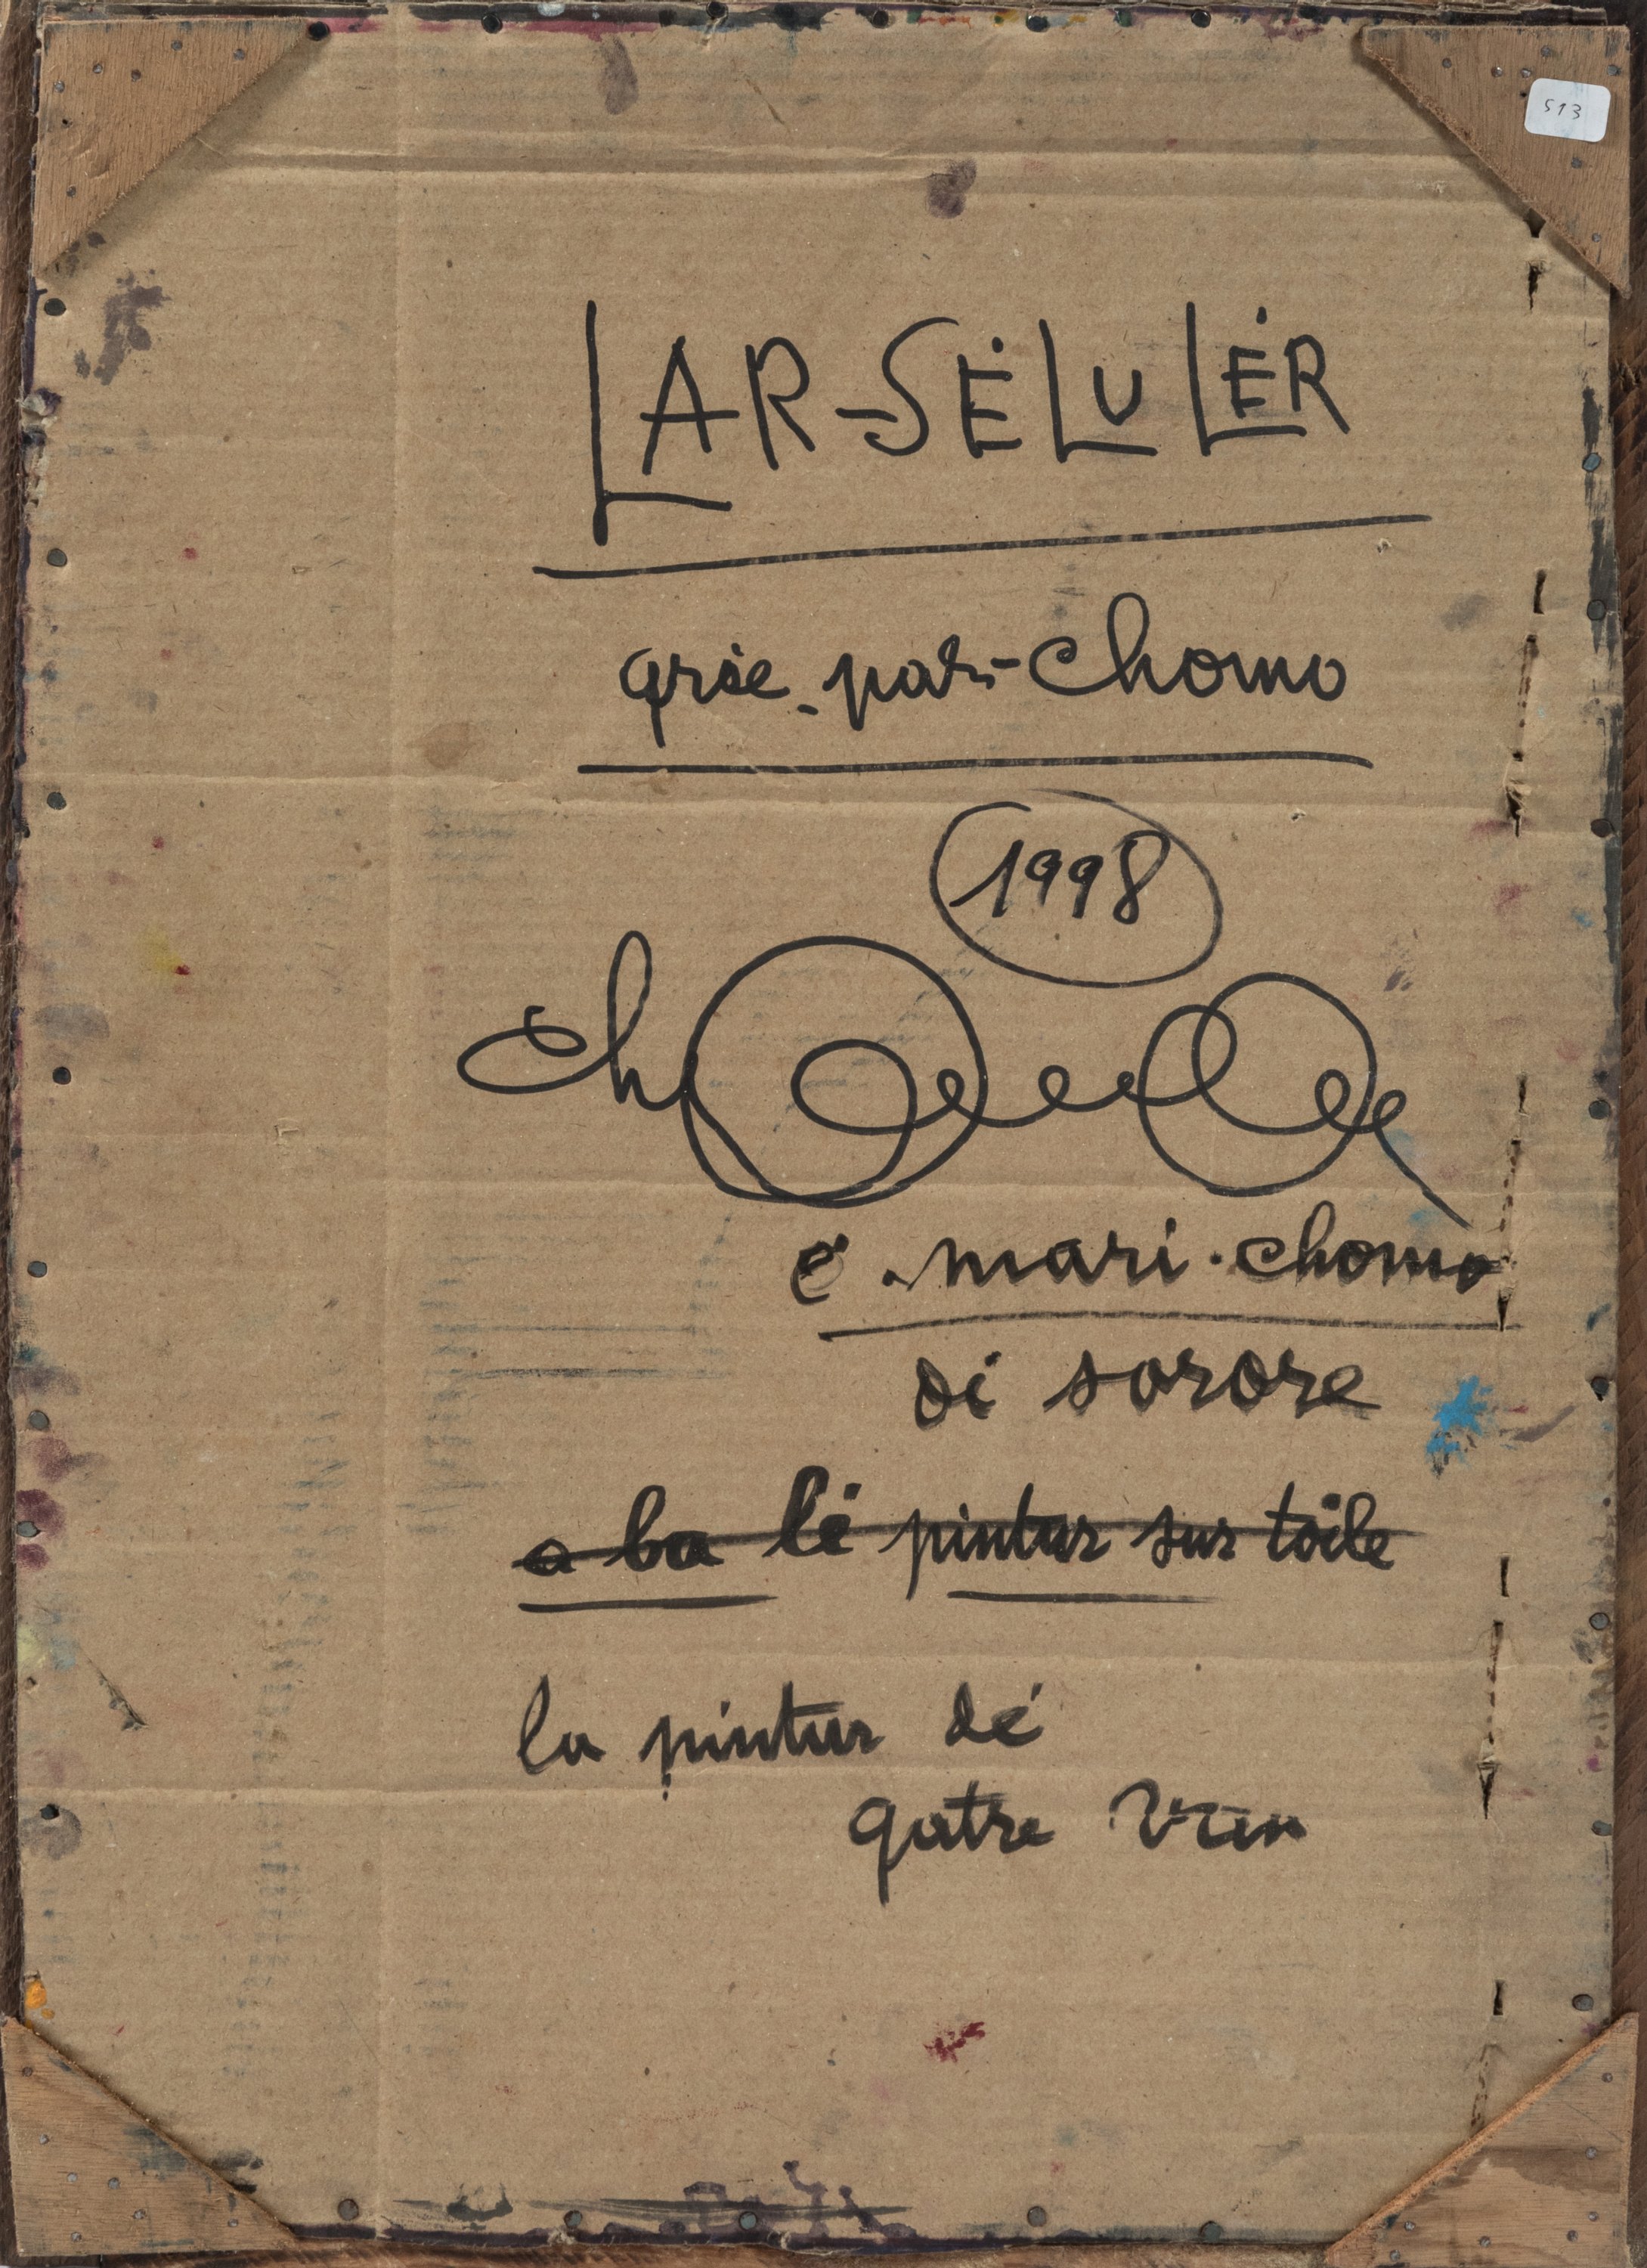 513
LAR-SÉLULÉR
qrée-par-Chomo
1998
chomo
é.mari.chomo
di sorore
a ba lé pintur sur toile
la pintur dé
qatre